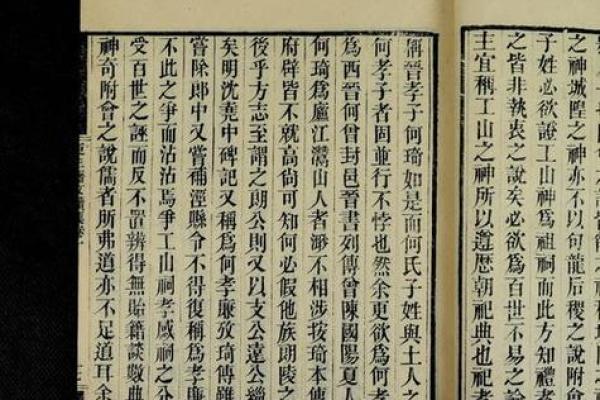 之神城隍之神亦不以句龍后稷之說附會
子姓必欲證工山神爲祖祠而此方知禮者
之皆非執衷之說矣必欲爲百世不易之論
主宜稱工山之神所以遵歷朝祀典也祀孝
晉孝子何琦如是而何氏子姓與土人之
何孝子者固並行不悖也然余更欲爲何孝
爲西晉何曾封邑晉書列傳曾陳國陽夏人
何琦爲廬江灊山人者渺不相涉按琦本傳
府辟皆不就高尚可知何必假他族朗陵之
後乎方志至謂之朗公則又以支公遠公緇
矣明沈堯中碑記又稱爲何孝廉攷琦傳雖
嘗除郎中又嘗補涇縣令不得復稱爲孝廉
不此之爭而沾沾焉爭工山祠孝感祠之分
受百世之誣而反不置辨得無貽籍談數典
神奇附會之說儒者所弗道亦不足道耳余